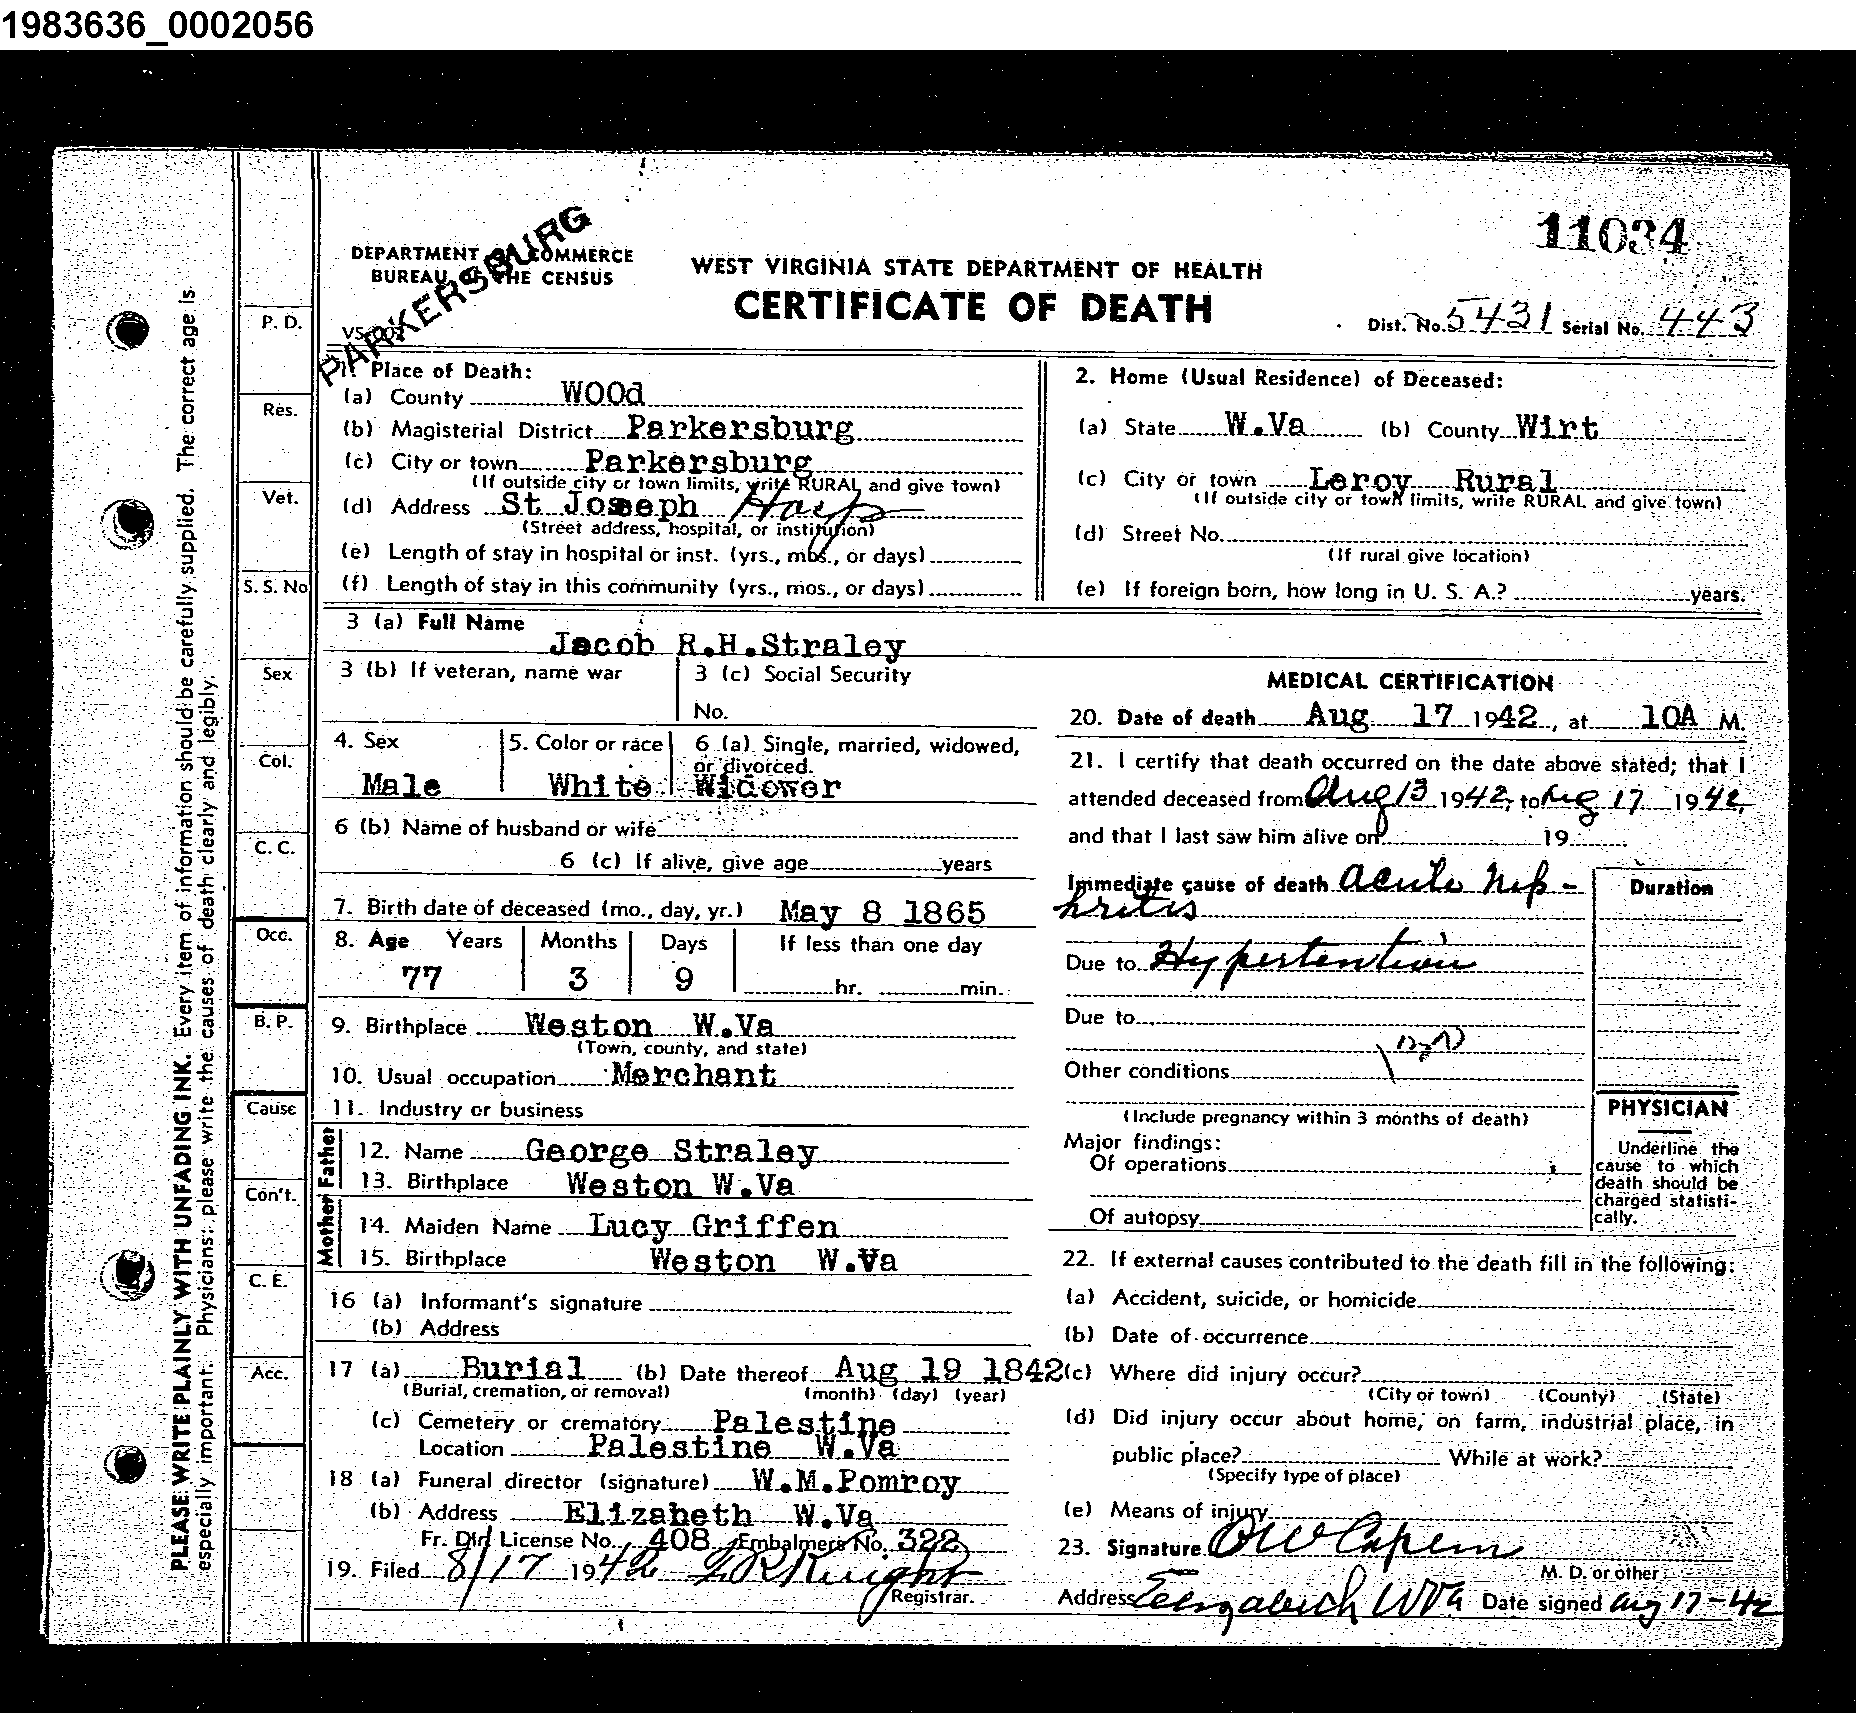 1983636_0002056
11034
PARKERSBURG
DEPARTMENT OF COMMERCE
BUREAU OF THE CENSUS
WEST VIRGINIA STATE DEPARTMENT OF HEALTH
CERTIFICATE OF DEATH
Dist. No. 5431 Serial No. 443
PLEASE WRITE PLAINLY WITH UNFADING INK. Every item of information should be carefully supplied. The correct age is
especially important. Physicians: please write the causes of death clearly and legibly.
P. D.
Res.
Vet.
S. S. No
Sex
Col.
C. C.
Occ.
B. P.
Cause
Con't.
C. E.
Acc.
1. Place of Death:
(a) County WOOd
(b) Magisterial District Parkersburg
(c) City or town Parkersburg
(If outside city or town limits, write RURAL and give town)
(d) Address St Joseph Hosp
(Street address, hospital, or institution)
(e) Length of stay in hospital or inst. (yrs., mos., or days)
(f) Length of stay in this community (yrs., mos., or days)
2. Home (Usual Residence) of Deceased:
(a) State W.Va (b) County Wirt
(c) City or town Leroy Rural
(If outside city or town limits, write RURAL and give town)
(d) Street No.
(If rural give location)
(e) If foreign born, how long in U. S. A.? years.
3 (a) Full Name
Jacob R.H.Straley
3 (b) If veteran, name war
3 (c) Social Security
No.
4. Sex
Male
5. Color or race
White
6 (a) Single, married, widowed,
or divorced.
Widower
6 (b) Name of husband or wife
6 (c) If alive, give age years
7. Birth date of deceased (mo., day, yr.) May 8 1865
8. Age Years Months Days If less than one day
77 3 9 hr. min.
9. Birthplace Weston W.Va
(Town, county, and state)
10. Usual occupation Merchant
11. Industry or business
Father
12. Name George Straley
13. Birthplace Weston W.Va
Mother
14. Maiden Name Lucy Griffen
15. Birthplace Weston W.Va
16 (a) Informant's signature
(b) Address
17 (a) Burial (b) Date thereof Aug 19 1842
(Burial, cremation, or removal) (month) (day) (year)
(c) Cemetery or crematory Palestine
Location Palestine W.Va
18 (a) Funeral director (signature) W.M.Pomroy
(b) Address Elizabeth W.Va
Fr. Dir. License No. 408 Embalmers No. 322
19. Filed 8/17 1942 Knight
Registrar.
MEDICAL CERTIFICATION
20. Date of death Aug 17 1942, at 10A M.
21. I certify that death occurred on the date above stated; that I
attended deceased from Aug 13 1942, to Aug 17 1942,
and that I last saw him alive on 19
Immediate cause of death acute nep-
hritis
Duration
Due to Hypertention
Due to
Other conditions
(Include pregnancy within 3 months of death)
Major findings:
Of operations
Of autopsy
PHYSICIAN
Underline the
cause to which
death should be
charged statisti-
cally.
22. If external causes contributed to the death fill in the following:
(a) Accident, suicide, or homicide
(b) Date of occurrence
(c) Where did injury occur?
(City or town) (County) (State)
(d) Did injury occur about home, on farm, industrial place, in
public place? While at work?
(Specify type of place)
(e) Means of injury
23. Signature
M. D. or other
Address Elizabeth WVa Date signed Aug 17-42